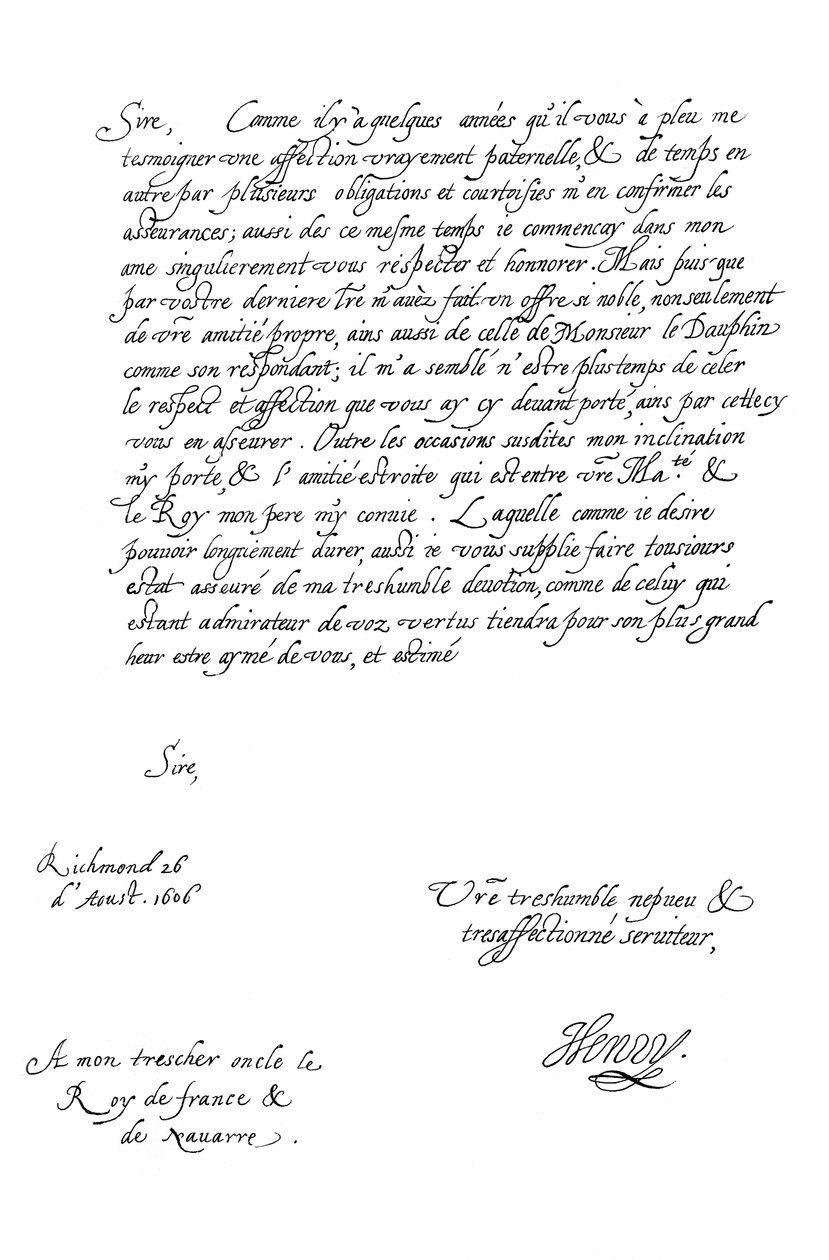 Sire, Comme il y à quelques années qu'il vous à pleu me
tesmoigner vne affection vrayement paternelle, & de temps en
autre par plusieurs obligations et courtoisies m'en confirmer les
asseurances; aussi des ce mesme temps ie commencay dans mon
ame singulierement vous respecter et honnorer. Mais puis que
par vostre derniere lr̃e m'auèz fait vn offre si noble, non seulement
de vr̃e amitié propre, ains aussi de celle de Monsieur le Dauphin
comme son respondant; il m'a semblé n'estre plus temps de celer
le respect et affection que vous ay cy deuant porté, ains par cette cy
vous en asseurer. Outre les occasions susdites mon inclination
m'y porte, & l'amitié estroite qui est entre vr̃e Ma.té &
le Roy mon pere m'y conuie. Laquelle comme ie desire
pouuoir longuement durer, aussi ie vous supplie faire tousiours
estat asseuré de ma treshumble deuotion, comme de celuy qui
estant admirateur de voz vertus tiendra pour son plus grand
heur estre aymé de vous, et estimé
Sire,
Richmond 26
d'Aoust. 1606
Vr̃e treshumble nepueu &
tresaffectionné seruiteur,
Henry.
A mon trescher oncle le
Roy de france &
de Nauarre.